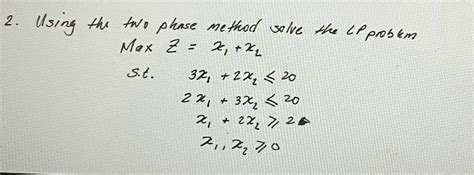 2. Using the two phase method solve the LP problem
Max Z = x₁ + x₂
s.t. 3x₁ + 2x₂ ⩽ 20
2x₁ + 3x₂ ⩽ 20
x₁ + 2x₂ ⩾ 2
x₁, x₂ ⩾ 0